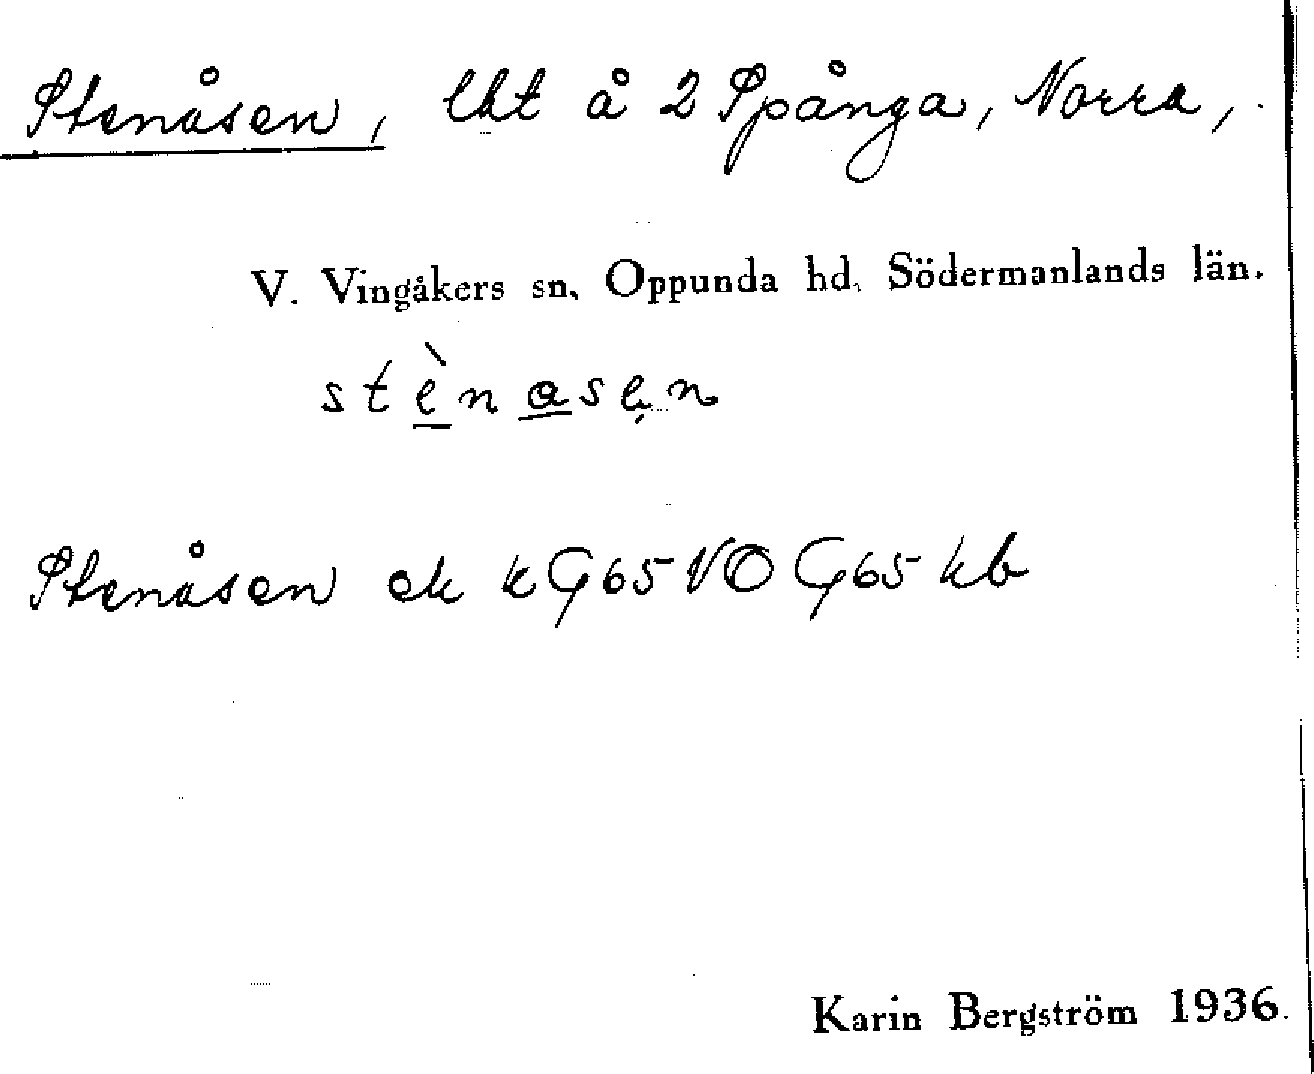 Stenåsen, lht å 2 Spånga, Norra,
V. Vingåkers sn, Oppunda hd, Södermanlands län.
stènasen
Stenåsen ek k G65 VO G65 kb
Karin Bergström 1936.